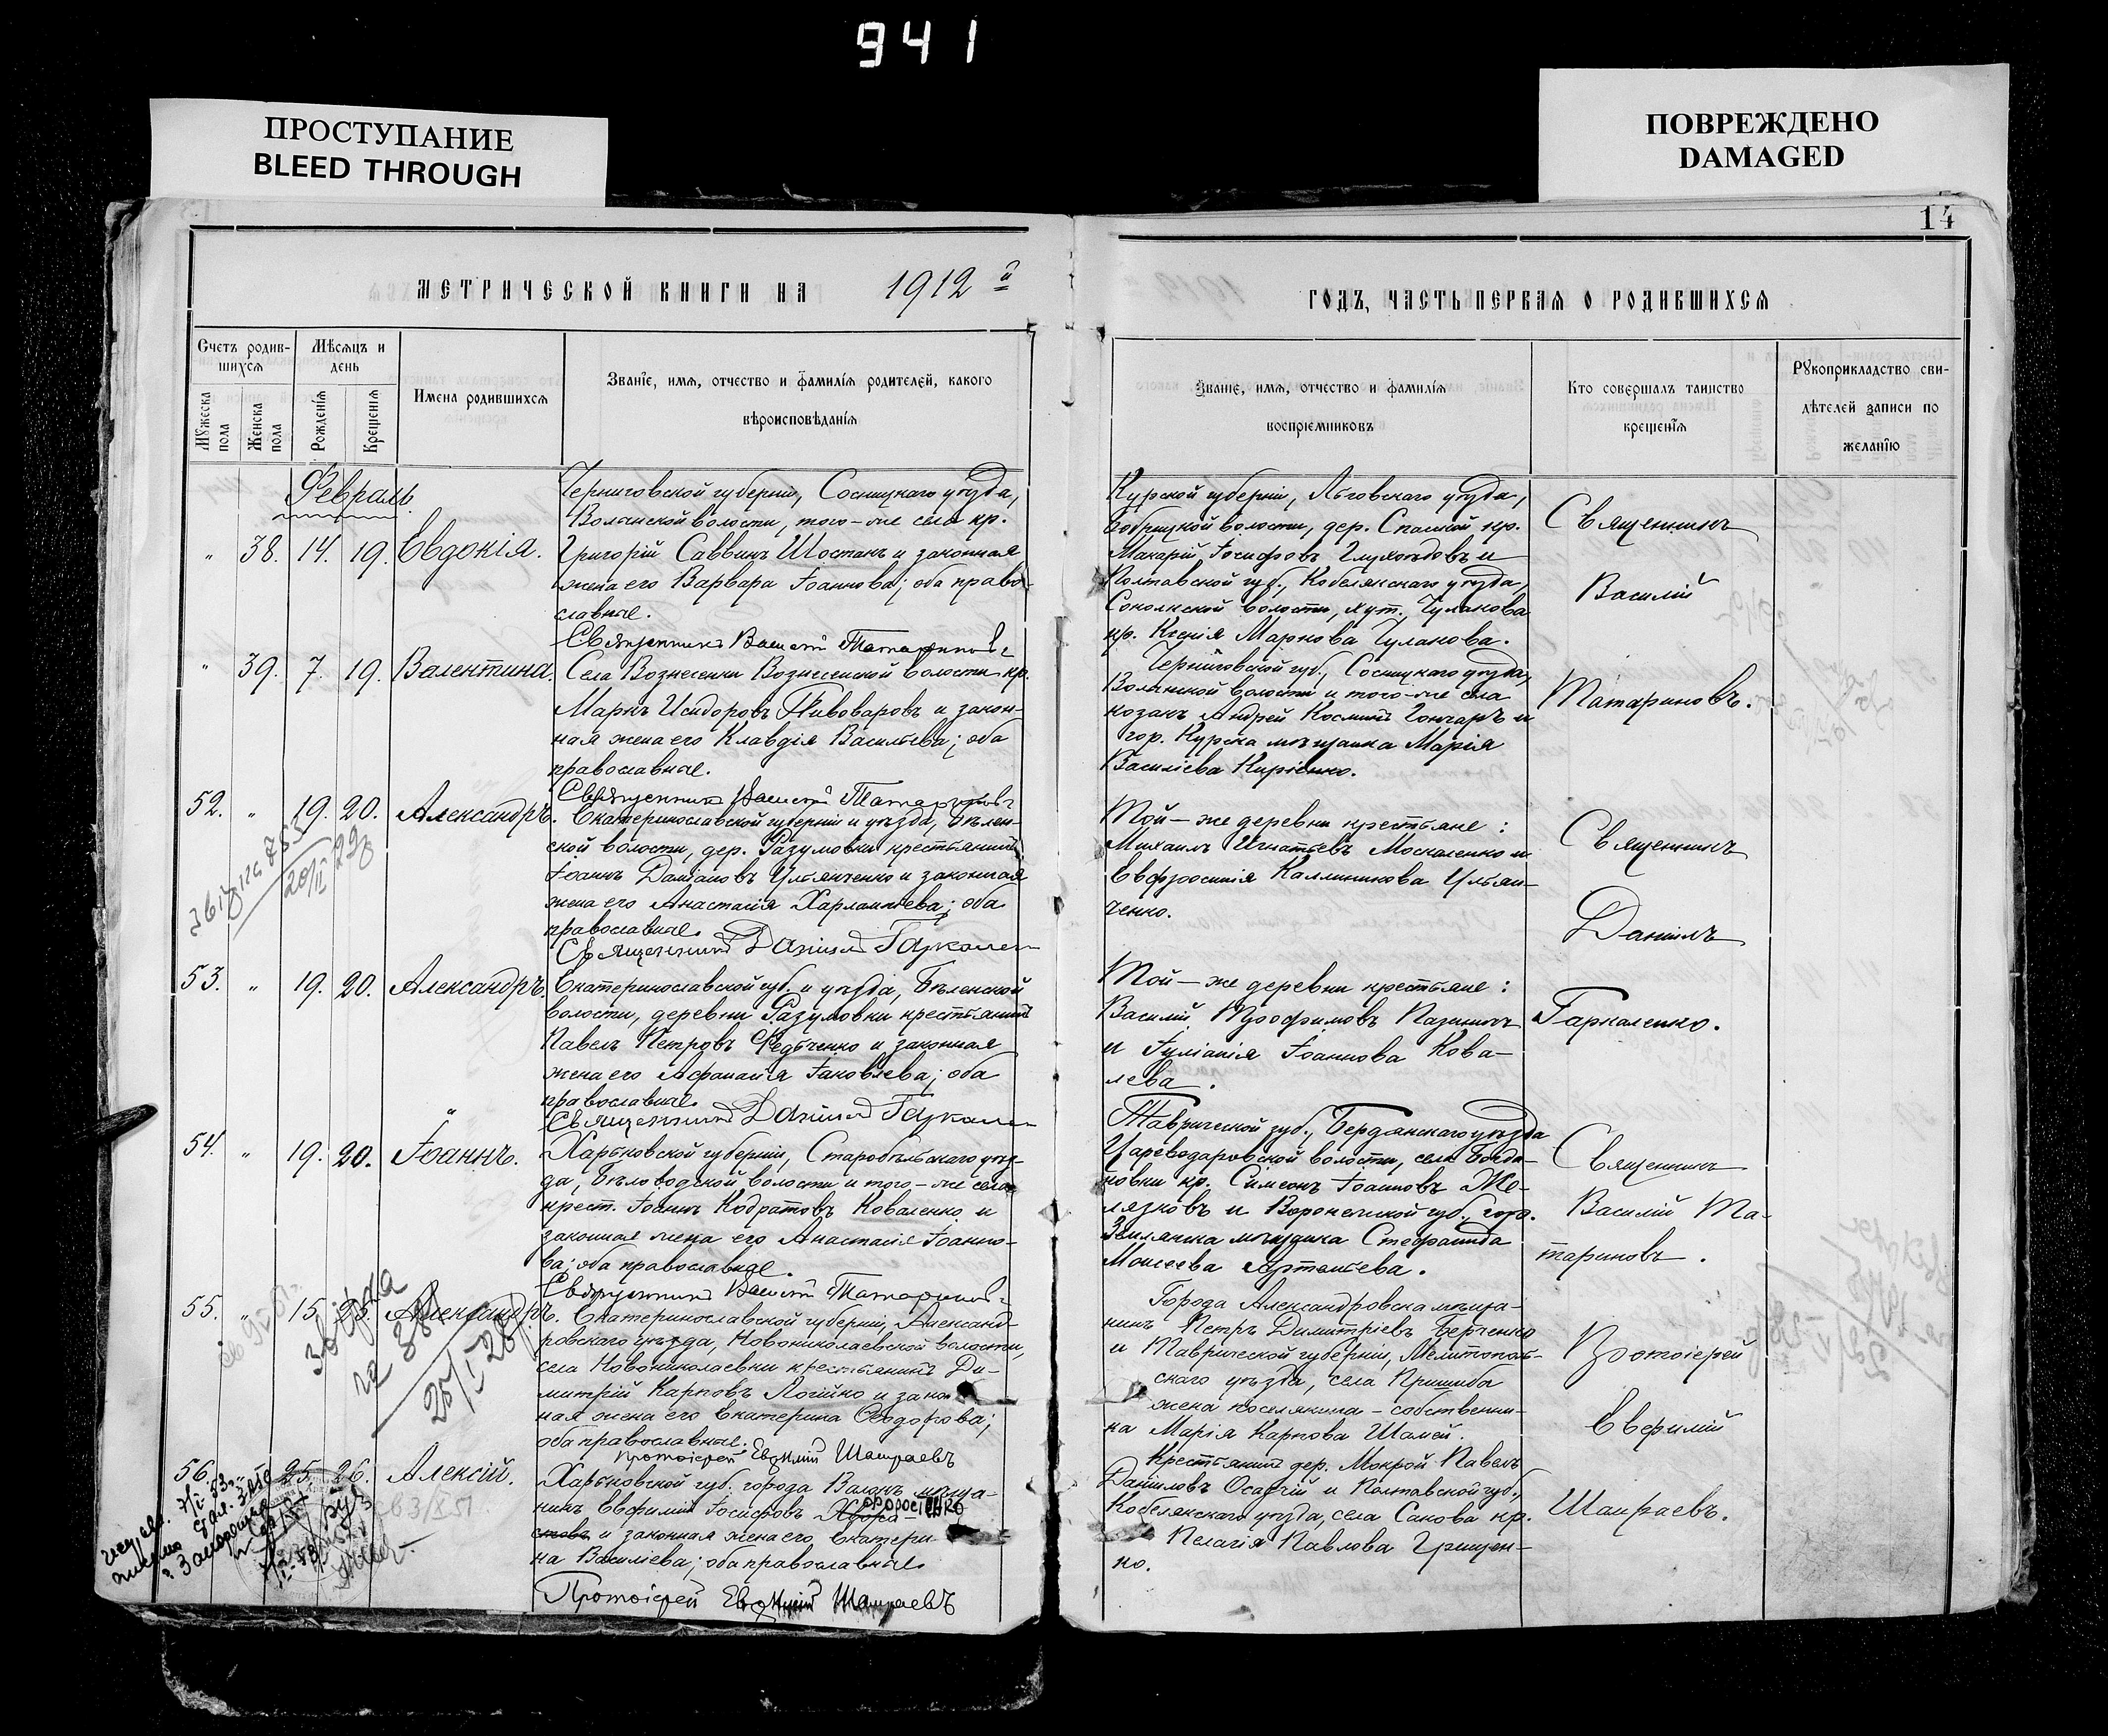 941
ПРОСТУПАНИЕ
BLEED THROUGH
ПОВРЕЖДЕНО
DAMAGED
14
МЕТРИЧЕСКОЙ КНИГИ НА 1912 й
ГОДЪ, ЧАСТЬ ПЕРВАЯ О РОДИВШИХСЯ
Счетъ родив-
шихся
Мужеска пола
Женска пола
Мѣсяцъ и
день
Рожденія
Крещенія
Имена родившихся
Званіе, имя, отчество и фамилія родителей, какого
вѣроисповѣданія
Званіе, имя, отчество и фамилія
воспріемниковъ
Кто совершалъ таинство
крещенія
Рукоприкладство сви-
дѣтелей записи по
желанію
Февраль.
" 38. 14. 19. Евдокія.
Черниговской губерніи, Сосницкаго уѣзда,
Волынской волости, того-же села кр.
Григорій Саввинъ Шостакъ и законная
жена его Варвара Іоаннова; оба право-
славные.
Священникъ Василій Татариновъ
Курской губерніи, Льговскаго уѣзда,
дер. Спасской кр.
Макарій Іосифовъ и
Полтавской губ., Кобелякскаго уѣзда,
Соколкской волости, хут. Чуланова
кр. Ксенія Маркова Чуланова.
Священникъ
Василій
Татариновъ.
" 39. 7. 19. Валентина.
Села Вознесенки Вознесенской волости кр.
Маркъ Исидоровъ Пивоваровъ и закон-
ная жена его Клавдія Васильева; оба
православные.
Священникъ Василій Татариновъ
Черниговской губ., Сосницкаго уѣзда,
Волынской волости и того-же села
козакъ Андрей Косминъ Гончаръ и
гор. Курска мѣщанка Марія
Василіева Киріенко.
52. " 19. 20. Александръ.
Екатеринославской губерніи и уѣзда, Бѣлен-
ской волости, дер. Разумовки крестьянинъ
Іоаннъ Даміановъ Ульянченко и законная
жена его Анастасія Харлампіева; оба
православные.
Священникъ Даніилъ Гаркаленко
Той-же деревни крестьяне:
Михаилъ Игнатьевъ Москаленко и
Евфросинія Каллиникова Ульян-
ченко.
Священникъ
Даніилъ
Гаркаленко.
53. " 19. 20. Александръ.
Екатеринославской губ. и уѣзда, Бѣленской
волости, деревни Разумовки крестьянинъ
Павелъ Петровъ Федьченко и законная
жена его Афанасія Іаковлева; оба
православные.
Священникъ Даніилъ Гаркаленко
Той-же деревни крестьяне:
Василій Трофимовъ
и Іуліанія Іоаннова Кова-
лева.
54. " 19. 20. Іоаннъ.
Харьковской губерніи, Старобѣльскаго уѣз-
да, Бѣловодской волости и того-же села
крест. Іоаннъ Кодратовъ Коваленко и
законная жена его Анастасія Іоанно-
ва; оба православные.
Священникъ Василій Татариновъ
Таврической губ., Бердянскаго уѣзда
Цареводаровской волости, села Богда-
новки кр. Симеонъ Іоанновъ Же-
лязковъ и Воронежской губ., гор.
Землянска мѣщанка Стефанида
Моисеева Артемьева.
Священникъ
Василій Та-
тариновъ.
55. " 15. 25. Александръ.
Екатеринославской губерніи, Александ-
ровскаго уѣзда, Новониколаевской волости,
села Новониколаевки крестьянинъ Ди-
митрій Карповъ и закон-
ная жена его Екатерина Ѳеодорова;
оба православные.
Протоіерей Евѳимій Шамраевъ
Города Александровска мѣща-
нинъ Петръ Димитріевъ Берченко
и Таврической губерніи, Мелитополь-
скаго уѣзда, села Пришиба
жена поселянина-собственни-
ка Марія Карпова Шамей.
Протоіерей
Евфимій
Шамраевъ.
56. " 25. 26. Алексій.
Харьковской губ. города Валокъ мѣща-
нинъ Евфимій Іосифовъ
и законная жена его Екатери-
на Василіева; оба православные.
Протоіерей Евѳимій Шамраевъ
Крестьянинъ дер. Мокрой Павелъ
Даніиловъ Осадчій и Полтавской губ.,
Кобелякскаго уѣзда, села кр.
Пелагія Павлова Грицен-
ко.